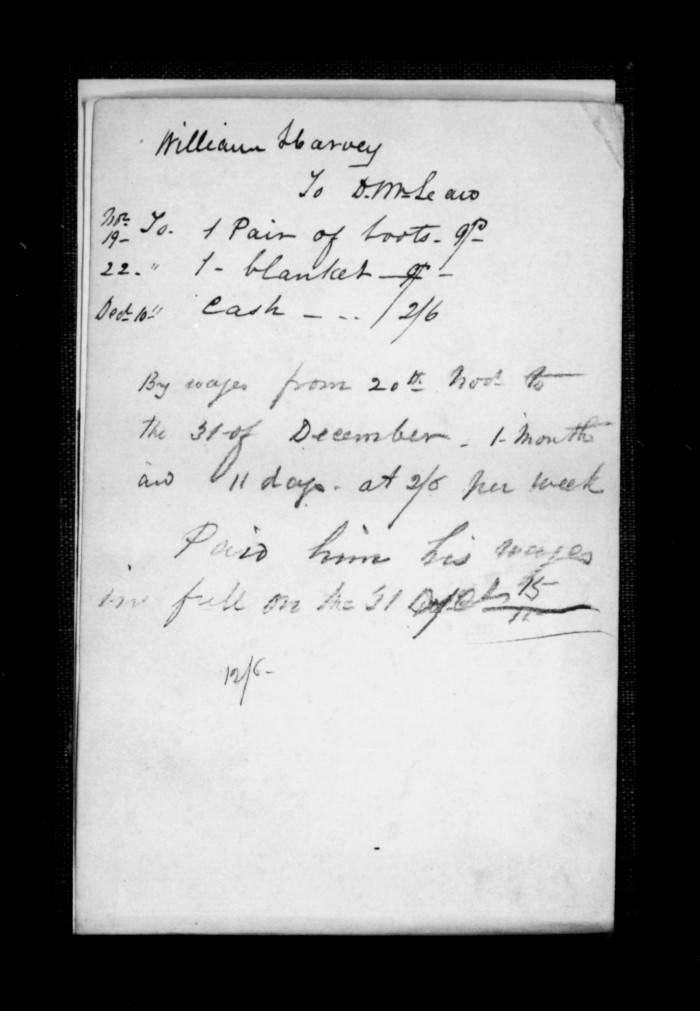 William Harvey
To D. McLean
Nov. 19 - To. 1 Pair of boots - 9/-
22 - " 1 - blanket -
Decr 10 " Cash - - - / 2/6
By wages from 20th Novr to
the 31 of December - 1 - Month
and 11 days - at 2/6 per week
Paid him his wages
in full on the 31 15
12/6 -